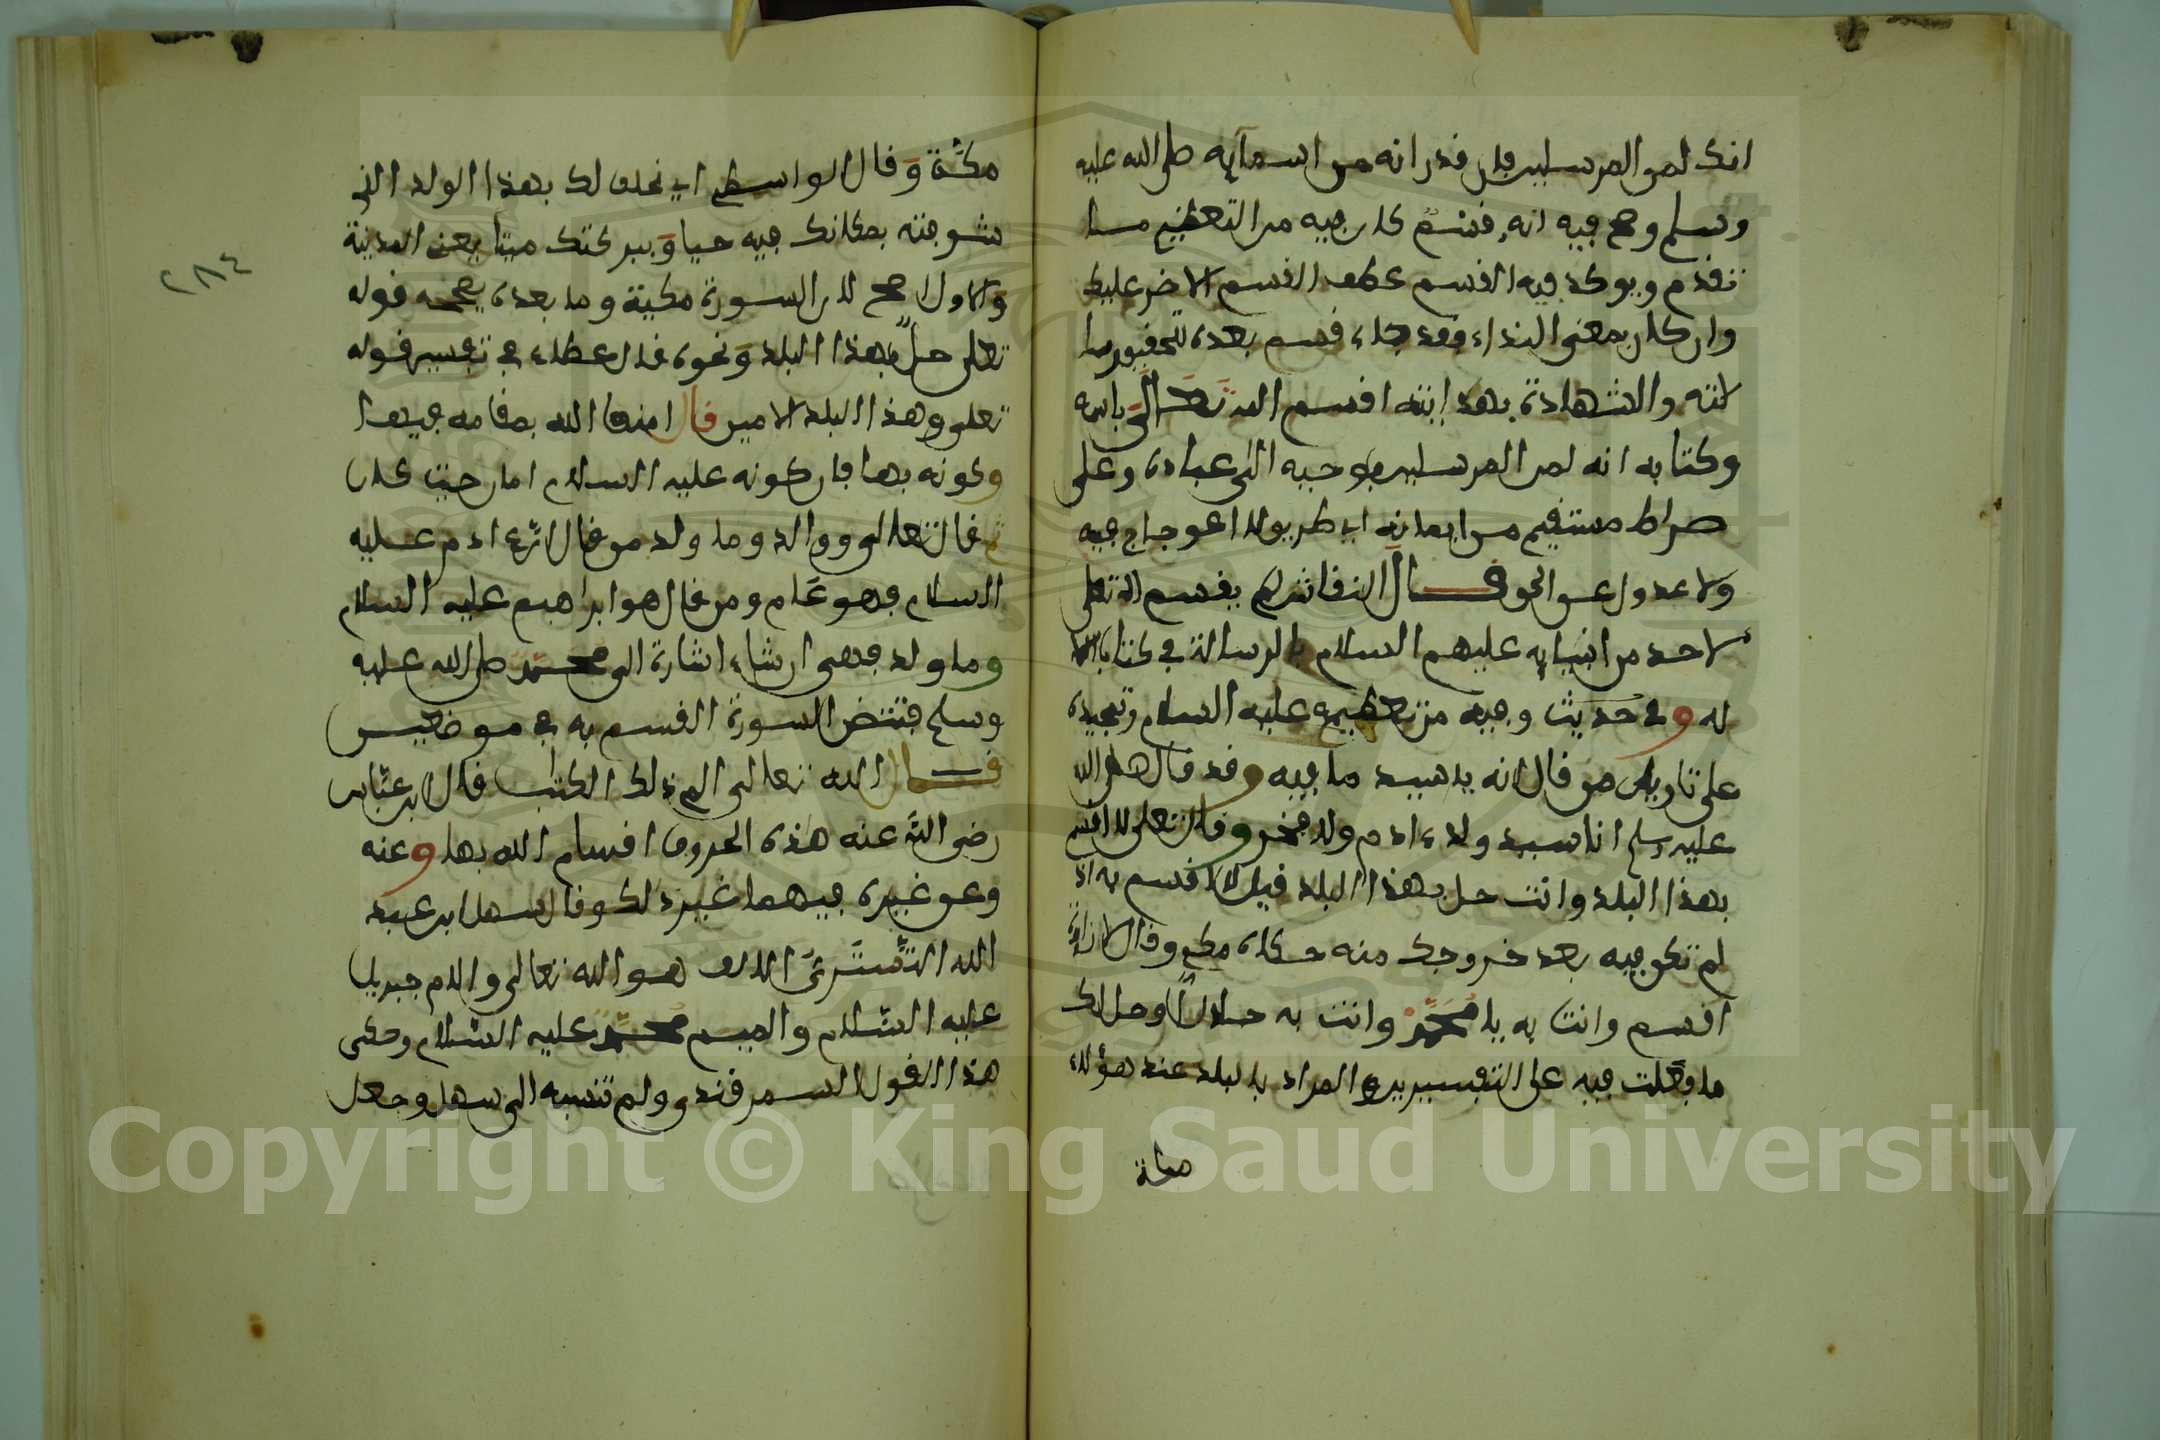 انك لمن المرسلين فإن قدر انه من اسمآيه صلى الله عليه
وسلم وصح فيه انه قسم كان فيه من التعظيم ما
تقدم ويوكد فيه القسم عطف القسم الاخر عليه
وان كان بمعنى النداء فقد جاء قسم بعده لتحقيق رسا
لته والشهادة بهدايته اقسم الله تعالى باسمه
وكتابه انه لمن المرسلين بوحيه الى عباده وعلى
صراط مستقيم من ايمانه اي طريق لا اعوجاج فيه
ولا عدول عن الحق قال النقاش لم يقسم الله تعلى
لاحد من انبيايه عليهم السلام بالرسالة في كتابه الا
له وفي حديث وفيه من تعظيمه عليه السلام وتمجيده
على تاويل من قال انه يا سيد ما فيه وقد قال صلى الله
عليه وسلم انا سيد ولد ءادم ولا فخر وقال تعلى لا اقسم
بهذا البلد وانت حل بهذا البلد قيل لا اقسم به اذا
لم تكن فيه بعد خروجك منه حكاه مكي وقال لا زايدة
اقسم وانت به يا محمد وانت به حلالٌ او حل لك
ما فعلت فيه على التفسيرين والمراد بالبلد عند هؤلاء
مكة
مكة وقال الواسطي اي نحلف لك بهذا الولد الذي
شرفته بمكانك فيه حيا وببركتك ميتا يعني المدينة
والاول اصح لان السورة مكية وما بعده يصححه قوله
تعلى حل بهذا البلد ونحوه قال ابن عطاء في تفسير قوله
تعلى وهذا البلد الامين قال امنها الله بمقامه فيها
وكونه بها فان كونه عليه السلام امان حيث كان
ثم قال تعالى ووالد وما ولد من قال اراد ءادم عليه
السلام فهو عام ومن قال هو ابراهيم عليه السلام
وما ولد فهي ان شاء اشارة الى محمد صلى الله عليه
وسلم فتتضمن السورة القسم به في موضعين
قال الله تعالى الم ذلك الكتاب قال ابن عباس
رضى الله عنه هذه الحروف اقسام الله بها وعنه
وعن غيره فيها غير ذلك وقال سهل ابن عبد
الله التستري الالف هو الله تعالى واللام جبريل
عليه السلام والميم محمد عليه السلام وحكى
هذا القول السمرقندي ولم ينسبه الى سهل وجعل
٢٨٤
Copyright © King Saud University